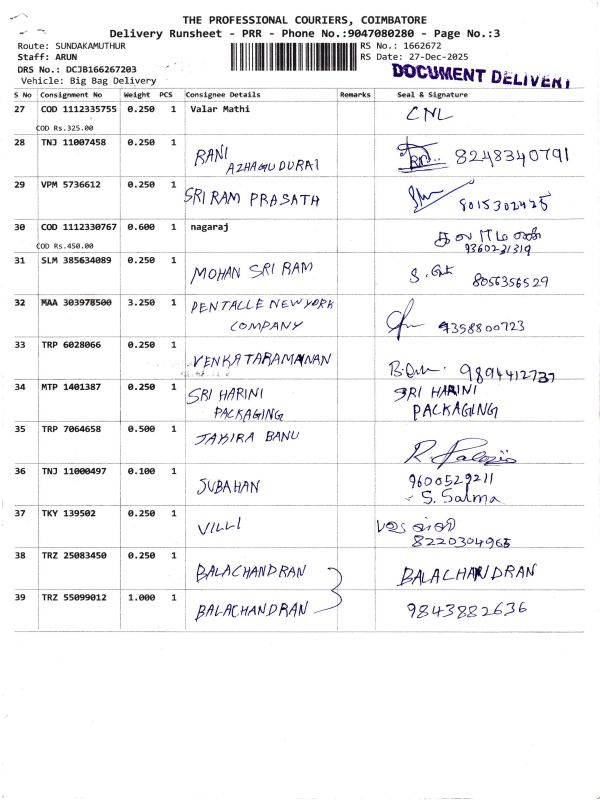 THE PROFESSIONAL COURIERS, COIMBATORE
Delivery Runsheet - PRR - Phone No.:9047080280 - Page No.:3
Route: SUNDAKAMUTHUR RS No.: 1662672
Staff: ARUN RS Date: 27-Dec-2025
DRS No.: DCJB166267203
Vehicle: Big Bag Delivery
DOCUMENT DELIVERY
S No Consignment No Weight PCS Consignee Details Remarks Seal & Signature
27 COD 1112335755 0.250 1 Valar Mathi CNL
COD Rs.325.00
28 TNJ 11007458 0.250 1 RANI AZHAGUDURAI 8248340791
29 VPM 5736612 0.250 1 SRIRAM PRASATH 8015302425
30 COD 1112330767 0.600 1 nagaraj
COD Rs.450.00 9360231319
31 SLM 385634089 0.250 1 MOHAN SRI RAM 8056356529
32 MAA 303978500 3.250 1 PENTALLE NEWYORK
COMPANY 9358800723
33 TRP 6028066 0.250 1 VENKATARAMANAN 9894412737
34 MTP 1401387 0.250 1 SRI HARINI SRI HARINI
PACKAGING PACKAGING
35 TRP 7064658 0.500 1 JAKIRA BANU
36 TNJ 11000497 0.100 1 SUBAHAN 9600529211
S. Salma
37 TKY 139502 0.250 1 VILLI
8220304965
38 TRZ 25083450 0.250 1 BALACHANDRAN BALACHANDRAN
39 TRZ 55099012 1.000 1 BALACHANDRAN 9843882636